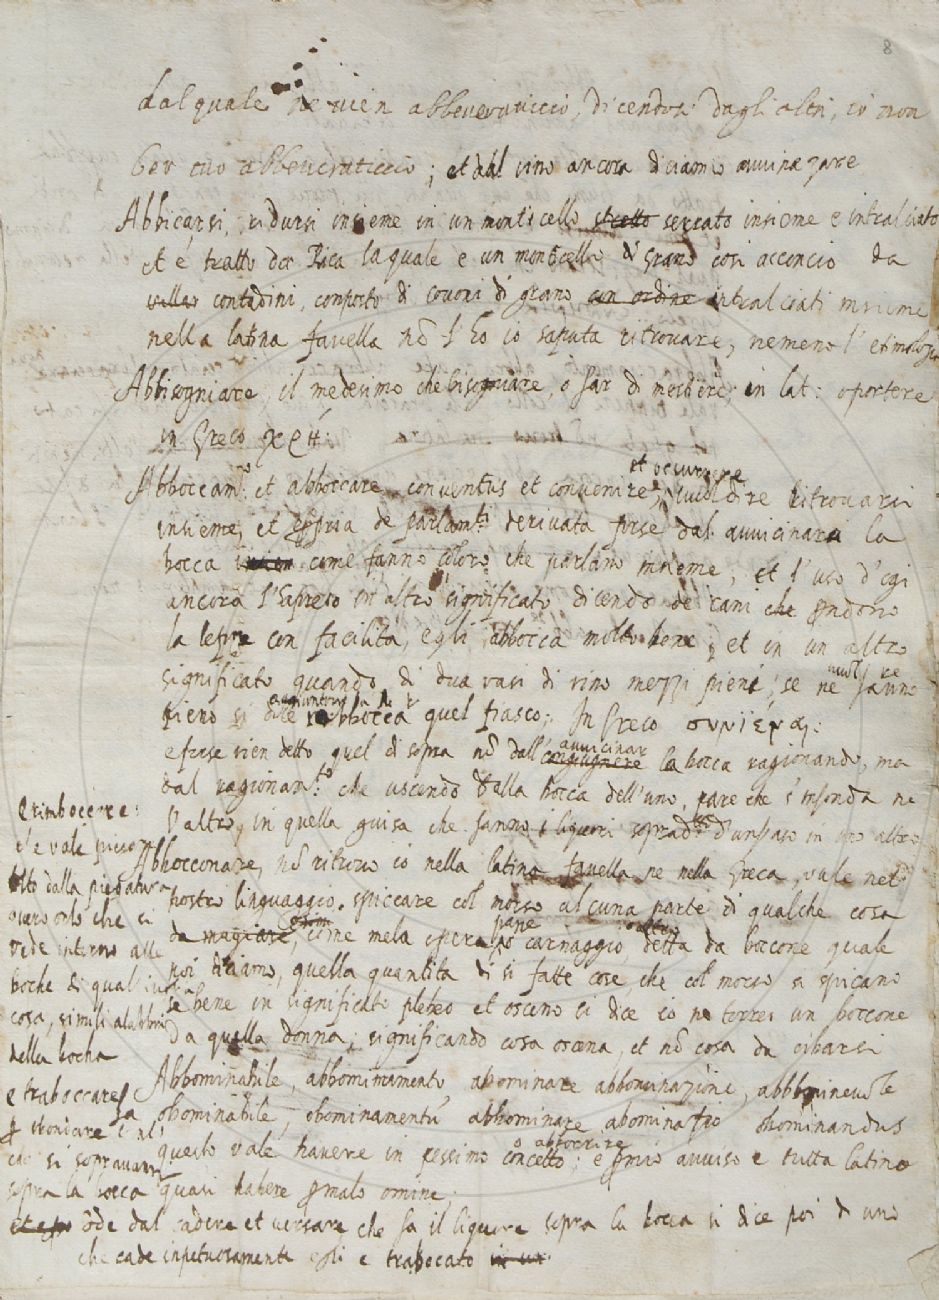 8
dal quale ne vien abbeveraticcio, dicendosi dagli altri, io non
bev tuo abbeveraticcio; et dal vino ancora diciamo avvinazare
Abbicarsi, ridursi insieme in un monticello serrato insieme e intralciato
et é tratto da Bica la quale e un monticello di Grano cosi acconcio da
contadini, composto di covoni di grano con ordine intralciati insieme
nella latina favella nō l'ho io saputa ritrovare, nemeno l'etimologia
Abbisogniare, il medesimo che bisogniare, o far di mestiere; in lat: oportere
in Greco χρή:
et occurrere
Abboccam.to et abboccare conventus et convenire, vuol dire ritrovarsi
insieme, et è de parlam.ti derivata forse dal avvicinarsi la
bocca come fanno coloro che parlano insieme, et l'uso d'ogi
ancora l'Espreso in altro significato, dicendo de cani che
la lepre con facilità, egli abbocca molto bene; et in un altro
significato quando di dua vasi di vino mezzi pieni, se ne fanno
pieno si dice rabbocca quel fiasco; In Greco
e forse vien detto quel di sopra nō dall'
avvicinar
congiugnere la bocca ragionando, ma
dal ragionam.to che uscendo della bocca dell'uno, pare che s'infonda ne
l'altro, in quella guisa che fanno i liquori d'un vaso in uno altro
Abbocconare, nō ritruovo io nella latina favella ne nella Greca, vale nel
nostro linguaggio spiccare col morso alcuna parte di qualche cosa
pane
da magiare, come mela pera o carnaggio, detta da boccone quale
noi diciamo, quella quantita di si fatte cose, che col morso si spicano
se bene in significato plebeo et osceno si dice io ne torrei un boccone
da quella donna; significando cosa oscena, et nō cosa da cibarsi
Abbominabile, abbominamento abominare abbominazione, abbominevole
abominabile, abominamentū abhominare abominatio abominandus
o abborrire
questo vale havere in pessimo concetto; e mio avviso e tutta latina
quasi habere malo omine;
e rimbocere:
e vale
dalla piegatura
overo orlo che si
vede intorno alle
boche di qual
cosa, simili alabbri
della bocha
e traboccare
sopra la bocca
ōde dal cadere et versare che fa il liquore sopra la bocca si dice poi d uno
che cade inpetuosamente egli e trabocato